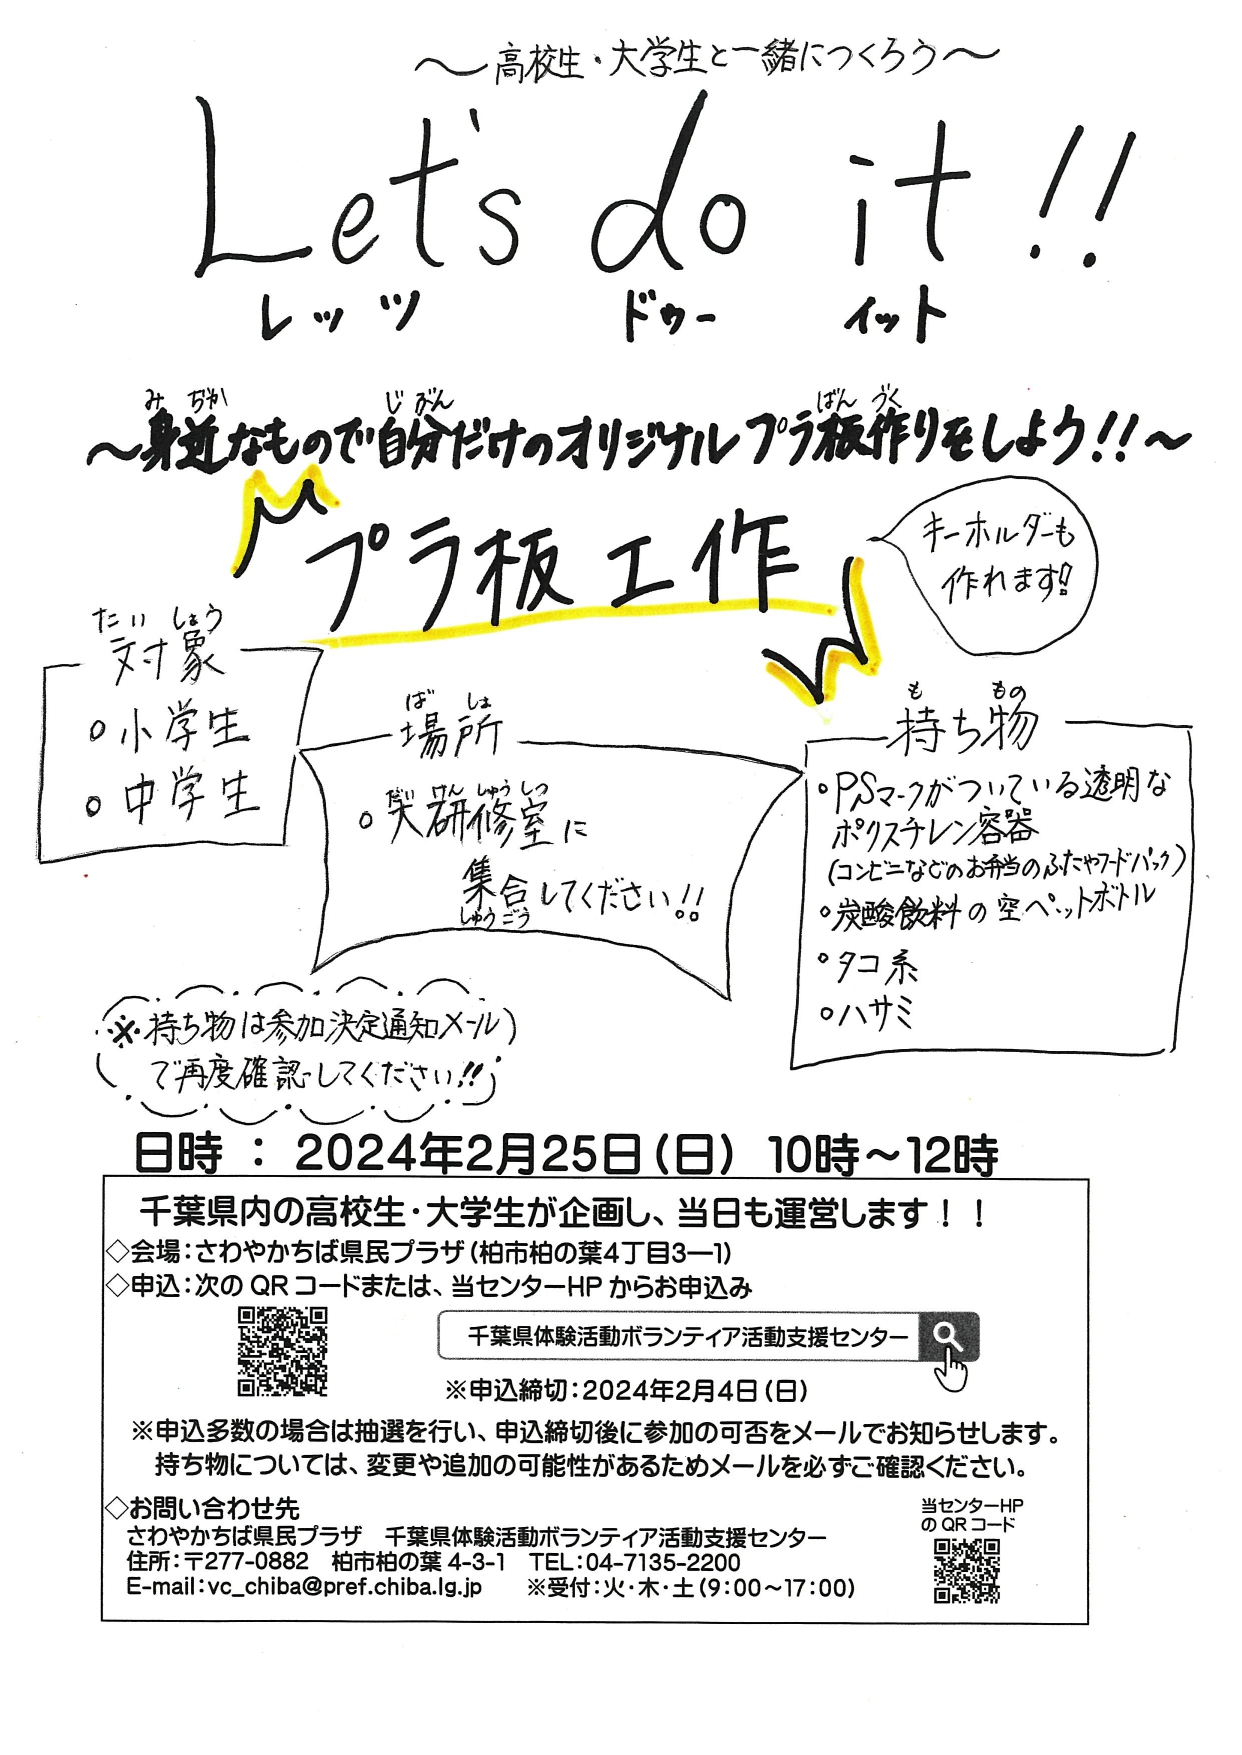 ～高校生・大学生と一緒につくろう～
Let's do it !!
レッツ ドゥー イット
み ぢか じ ぶん ばん づく
～身近なもので自分だけのオリジナルプラ板作りをしよう!!～
プラ板工作
キーホルダーも
作れます!!
たい しょう
対象
○小学生
○中学生
ば しょ
場所
だい けん しゅう しつ
○大研修室に
集合してください!!
しゅうごう
も もの
持ち物
○PSマークがついている透明な
ポリスチレン容器
(コンビニなどのお弁当のふたやフードパック)
○炭酸飲料の空ペットボトル
○タコ糸
○ハサミ
※持ち物は参加決定通知メール
で再度確認してください!!
日時 ： 2024年2月25日(日) 10時～12時
千葉県内の高校生・大学生が企画し、当日も運営します！！
◇会場：さわやかちば県民プラザ(柏市柏の葉4丁目3―1)
◇申込：次の QR コードまたは、当センターHP からお申込み
千葉県体験活動ボランティア活動支援センター
※申込締切：2024年2月4日(日)
※申込多数の場合は抽選を行い、申込締切後に参加の可否をメールでお知らせします。
持ち物については、変更や追加の可能性があるためメールを必ずご確認ください。
◇お問い合わせ先
さわやかちば県民プラザ 千葉県体験活動ボランティア活動支援センター
住所：〒277-0882 柏市柏の葉 4-3-1 TEL：04-7135-2200
E-mail：vc_chiba@pref.chiba.lg.jp ※受付：火・木・土(9：00～17：00)
当センターHP
の QR コード